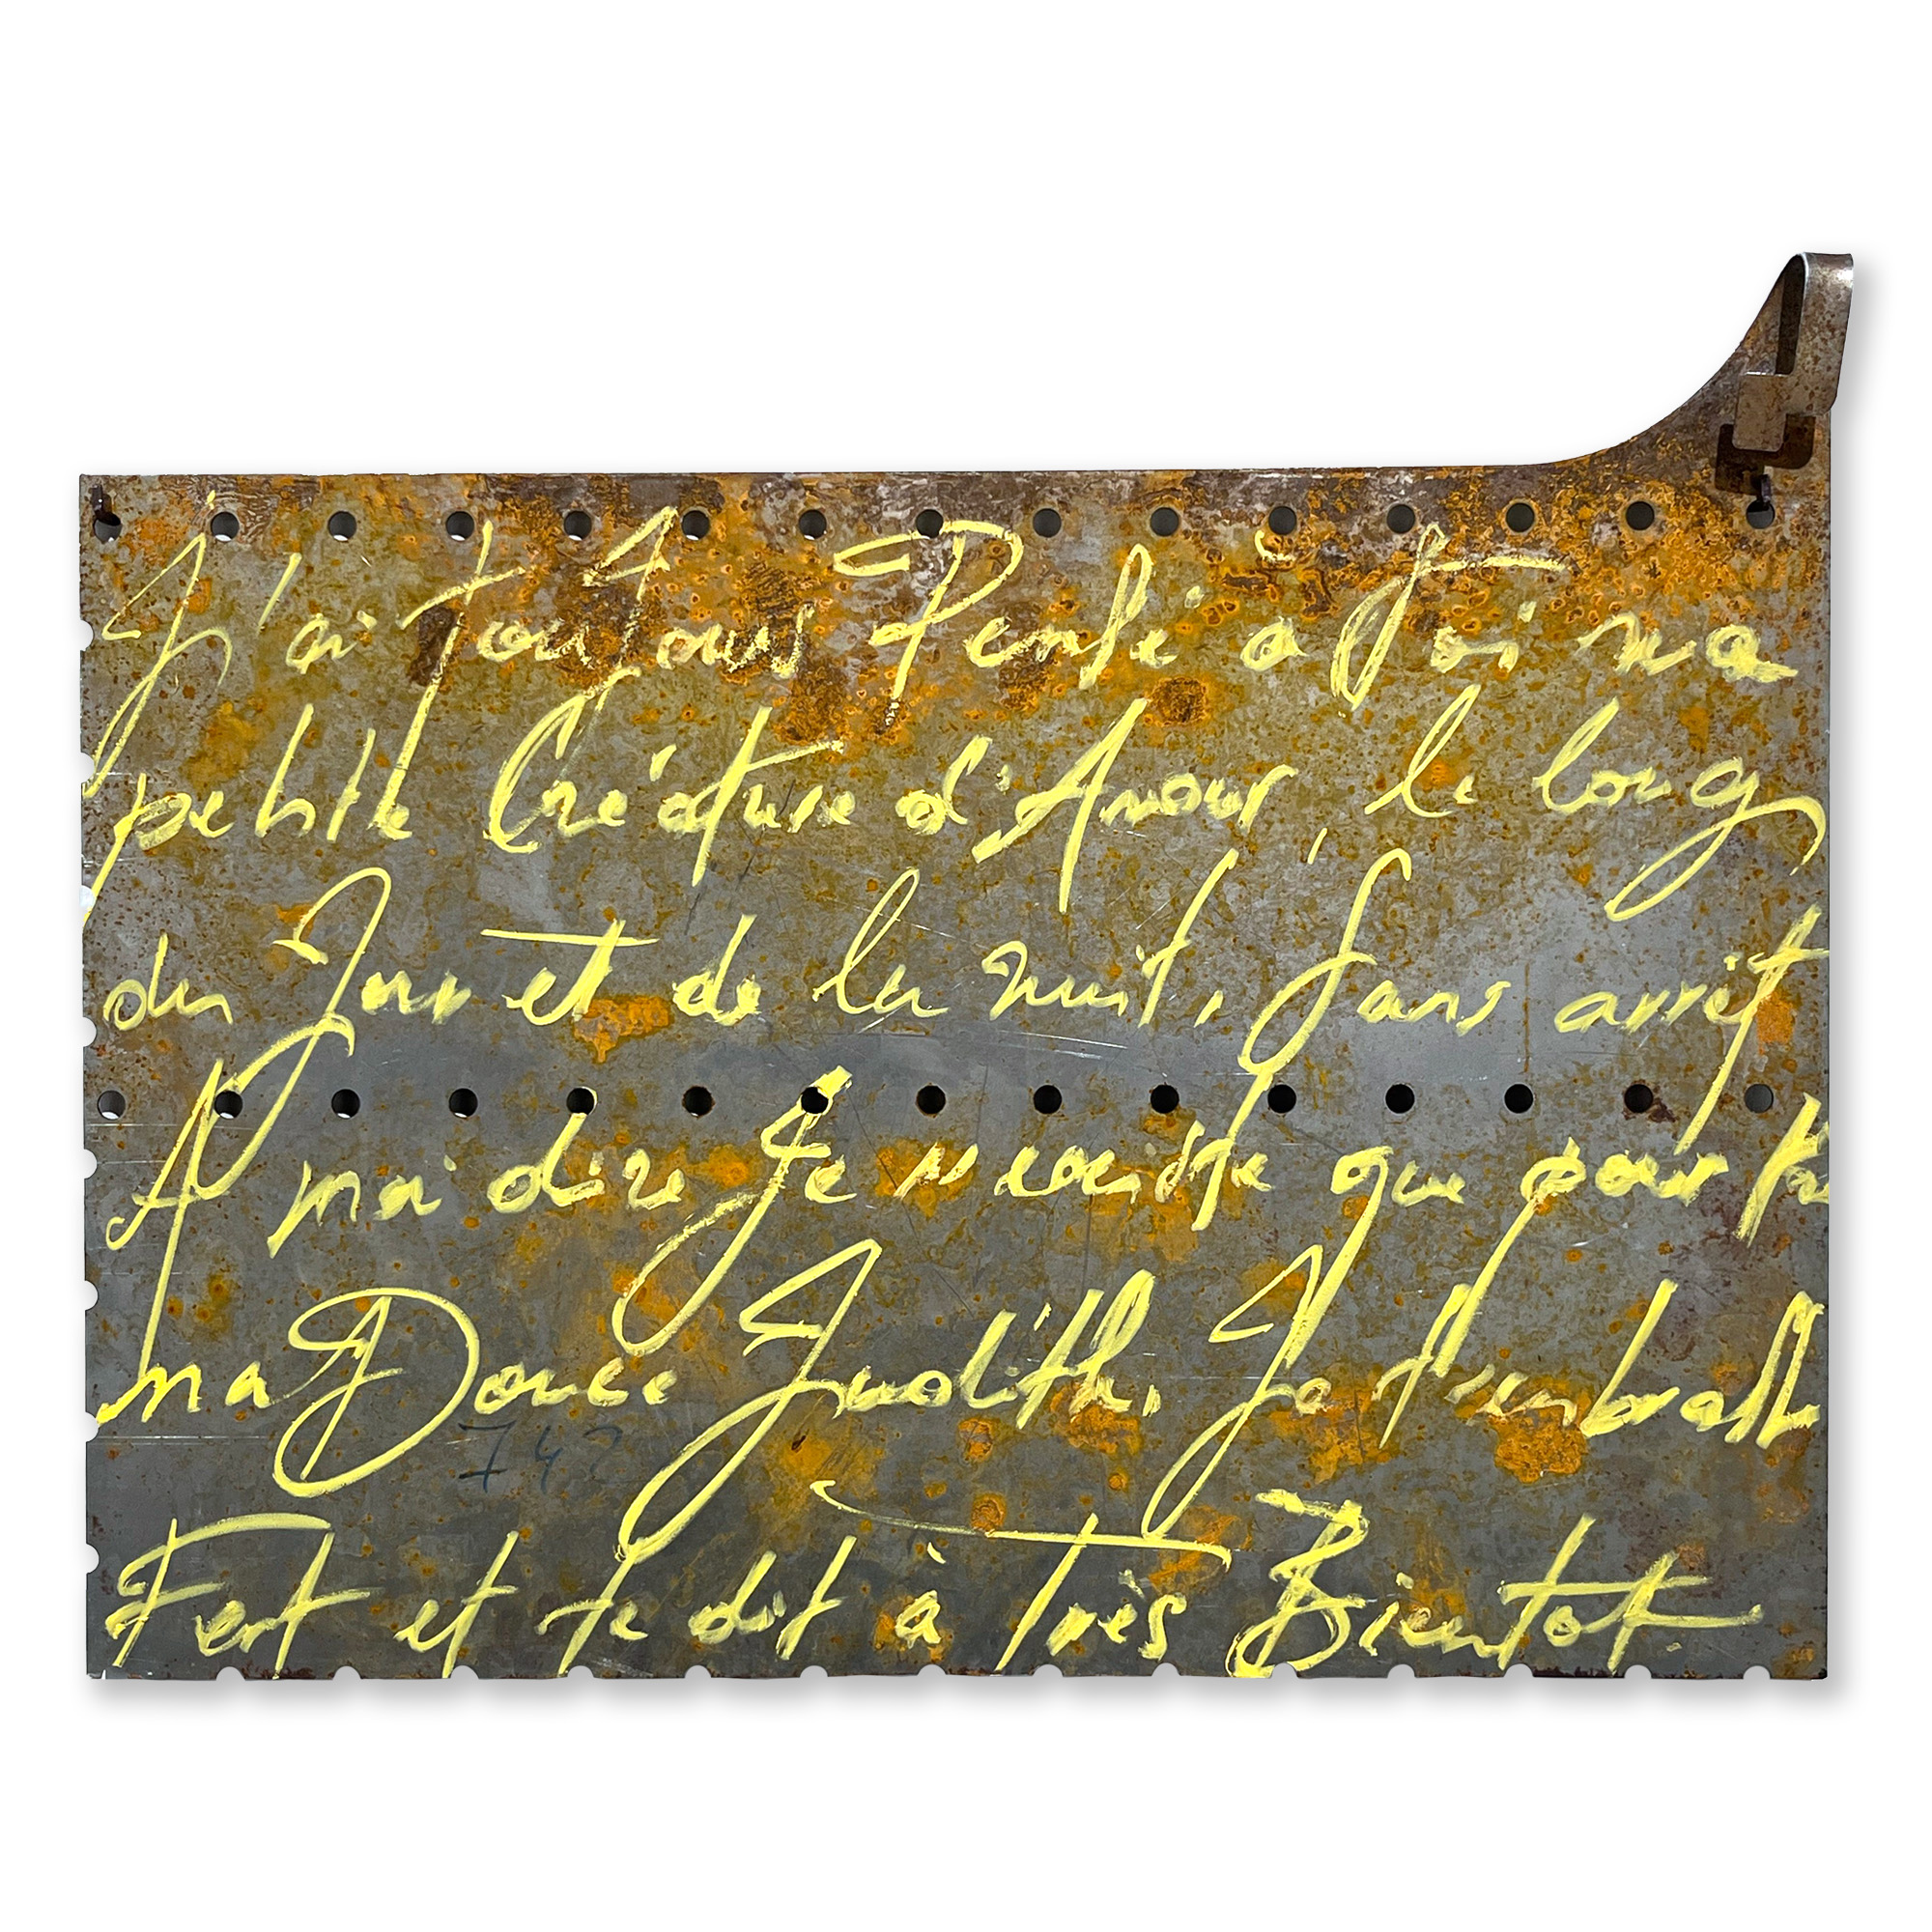 J'ai toujours Pensé à Toi ma
petite Créature d'Amour, le long
du Jour et de la nuit, Sans arrêt
A me dire Je n'existe que pour toi
ma Douce Judith. Je t'embrasse
Fort et te dit à Très Bientot.
742